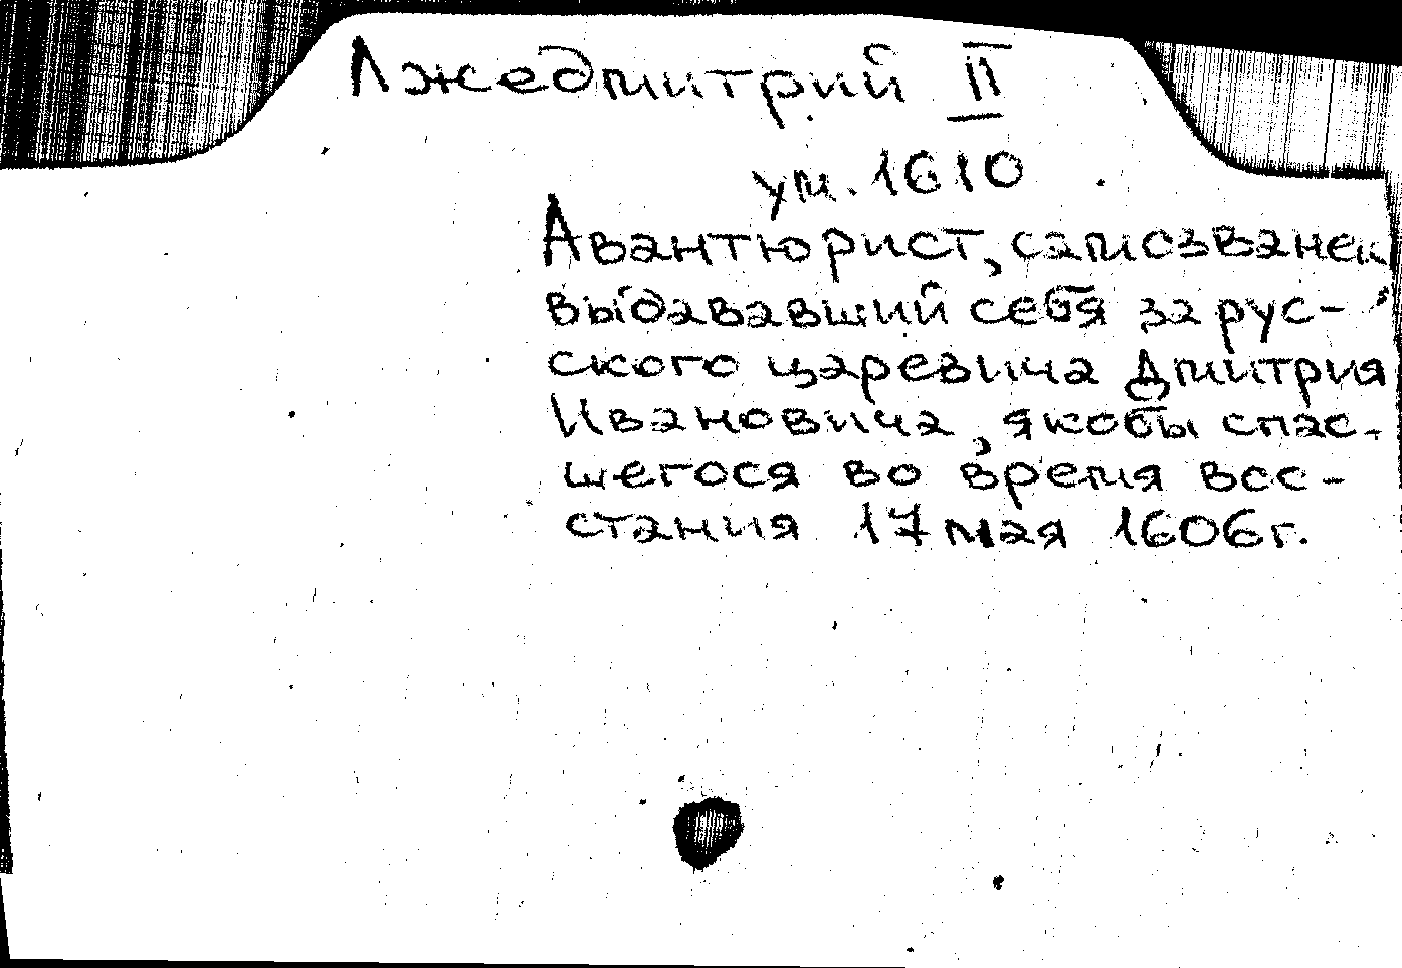 Лжедмитрий II
ум. 1610
Авантюрист, самозванец,
выдававший себя за рус-
ского царевича Дмитрия
Ивановича, якобы спас-
шегося во время вос-
стания 17 мая 1606 г.